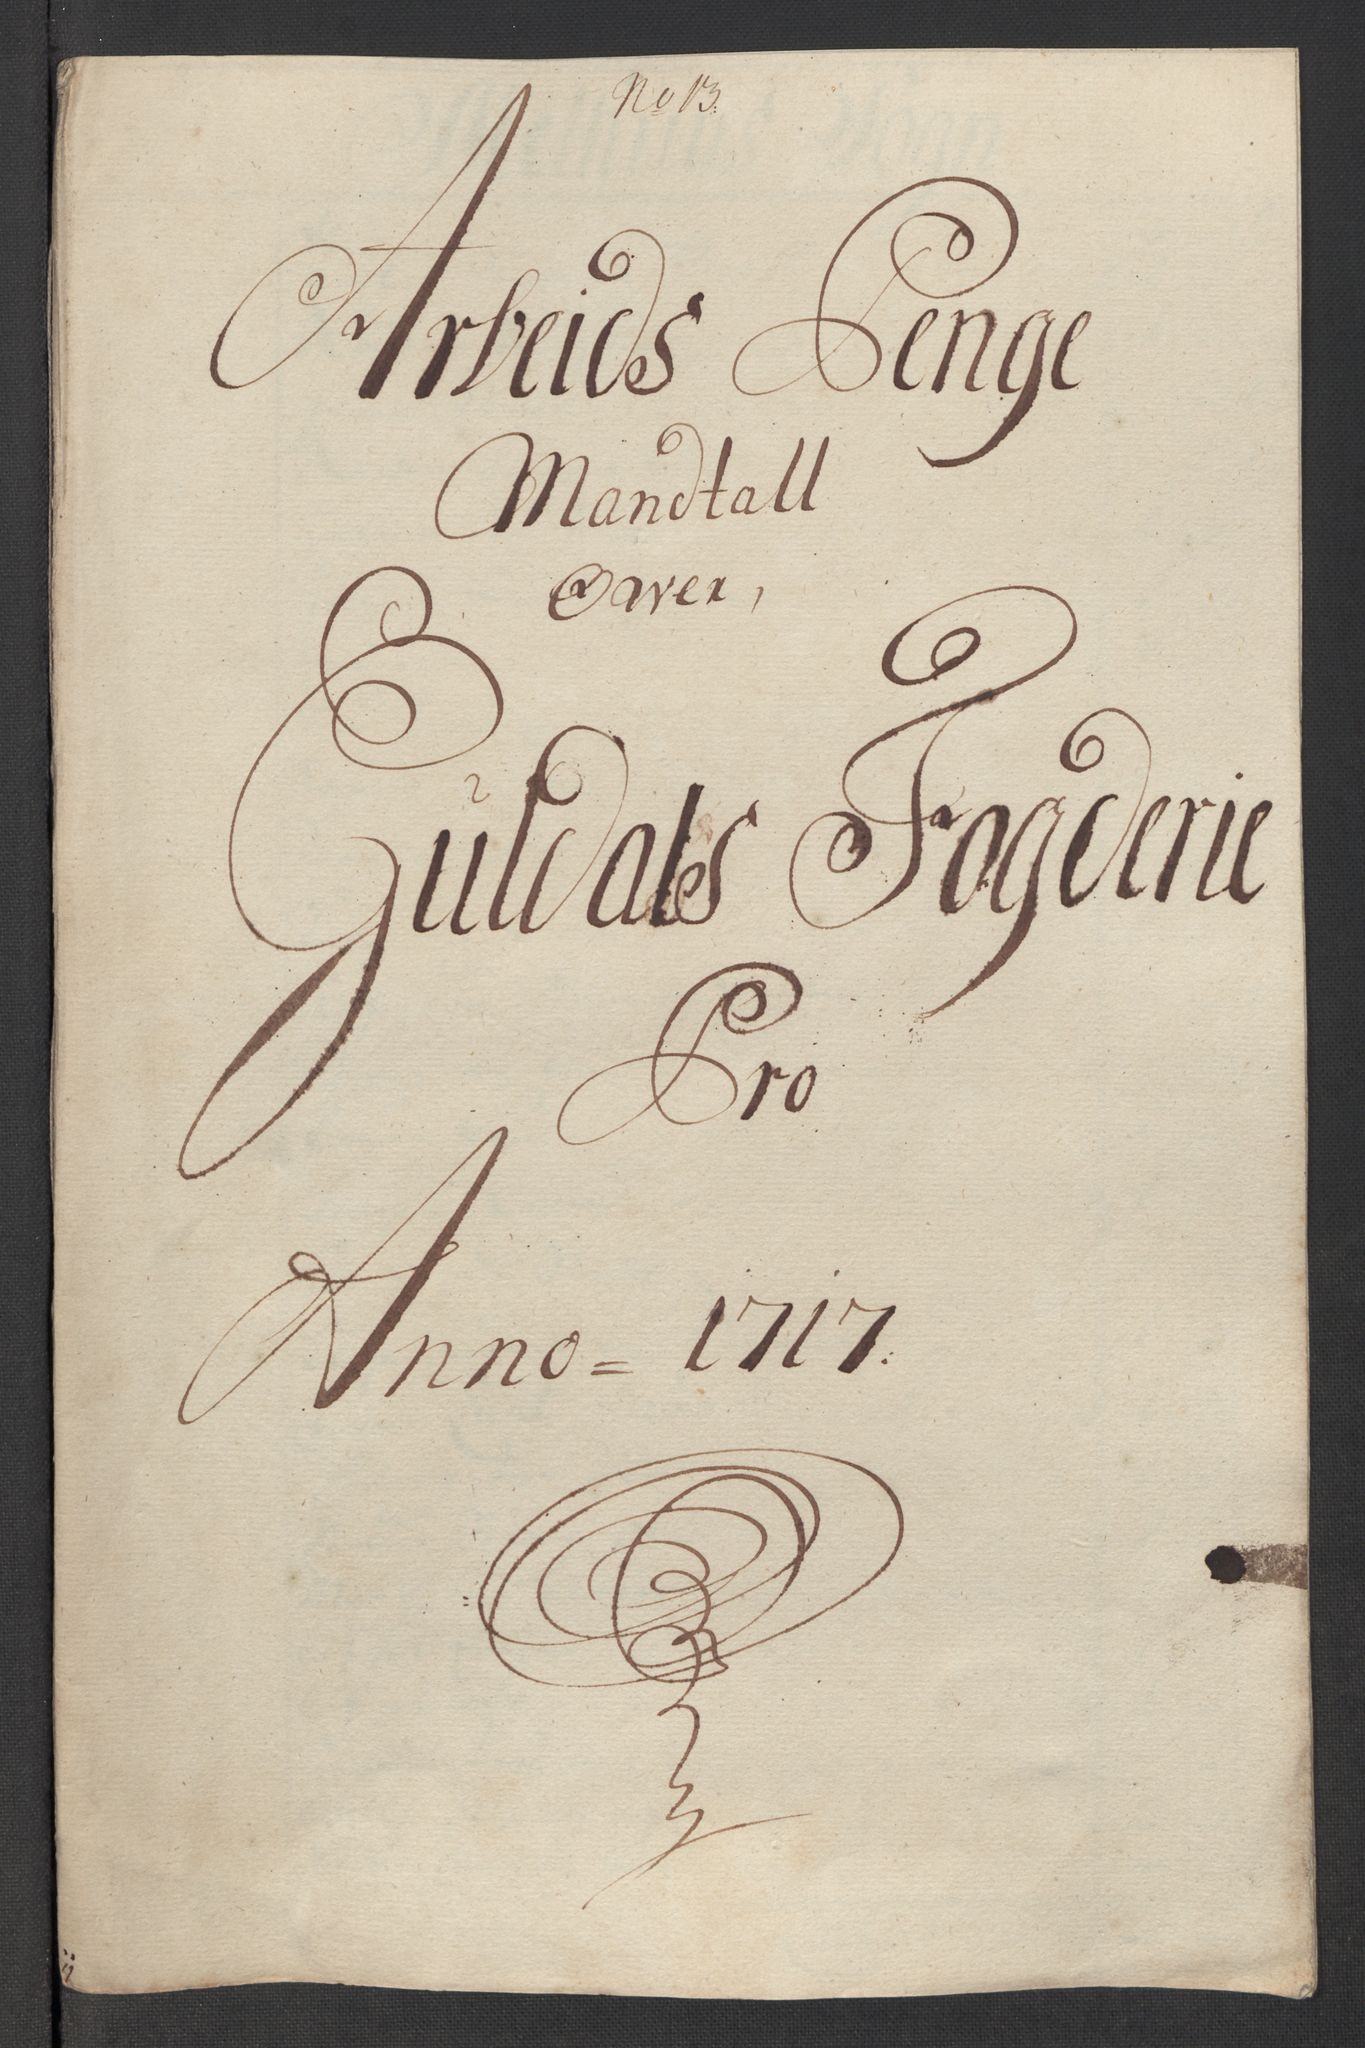 No 13.
Arbeids Penge
Mandtall
Over,
Guldals Fogderie
Pro
Anno = 1717.